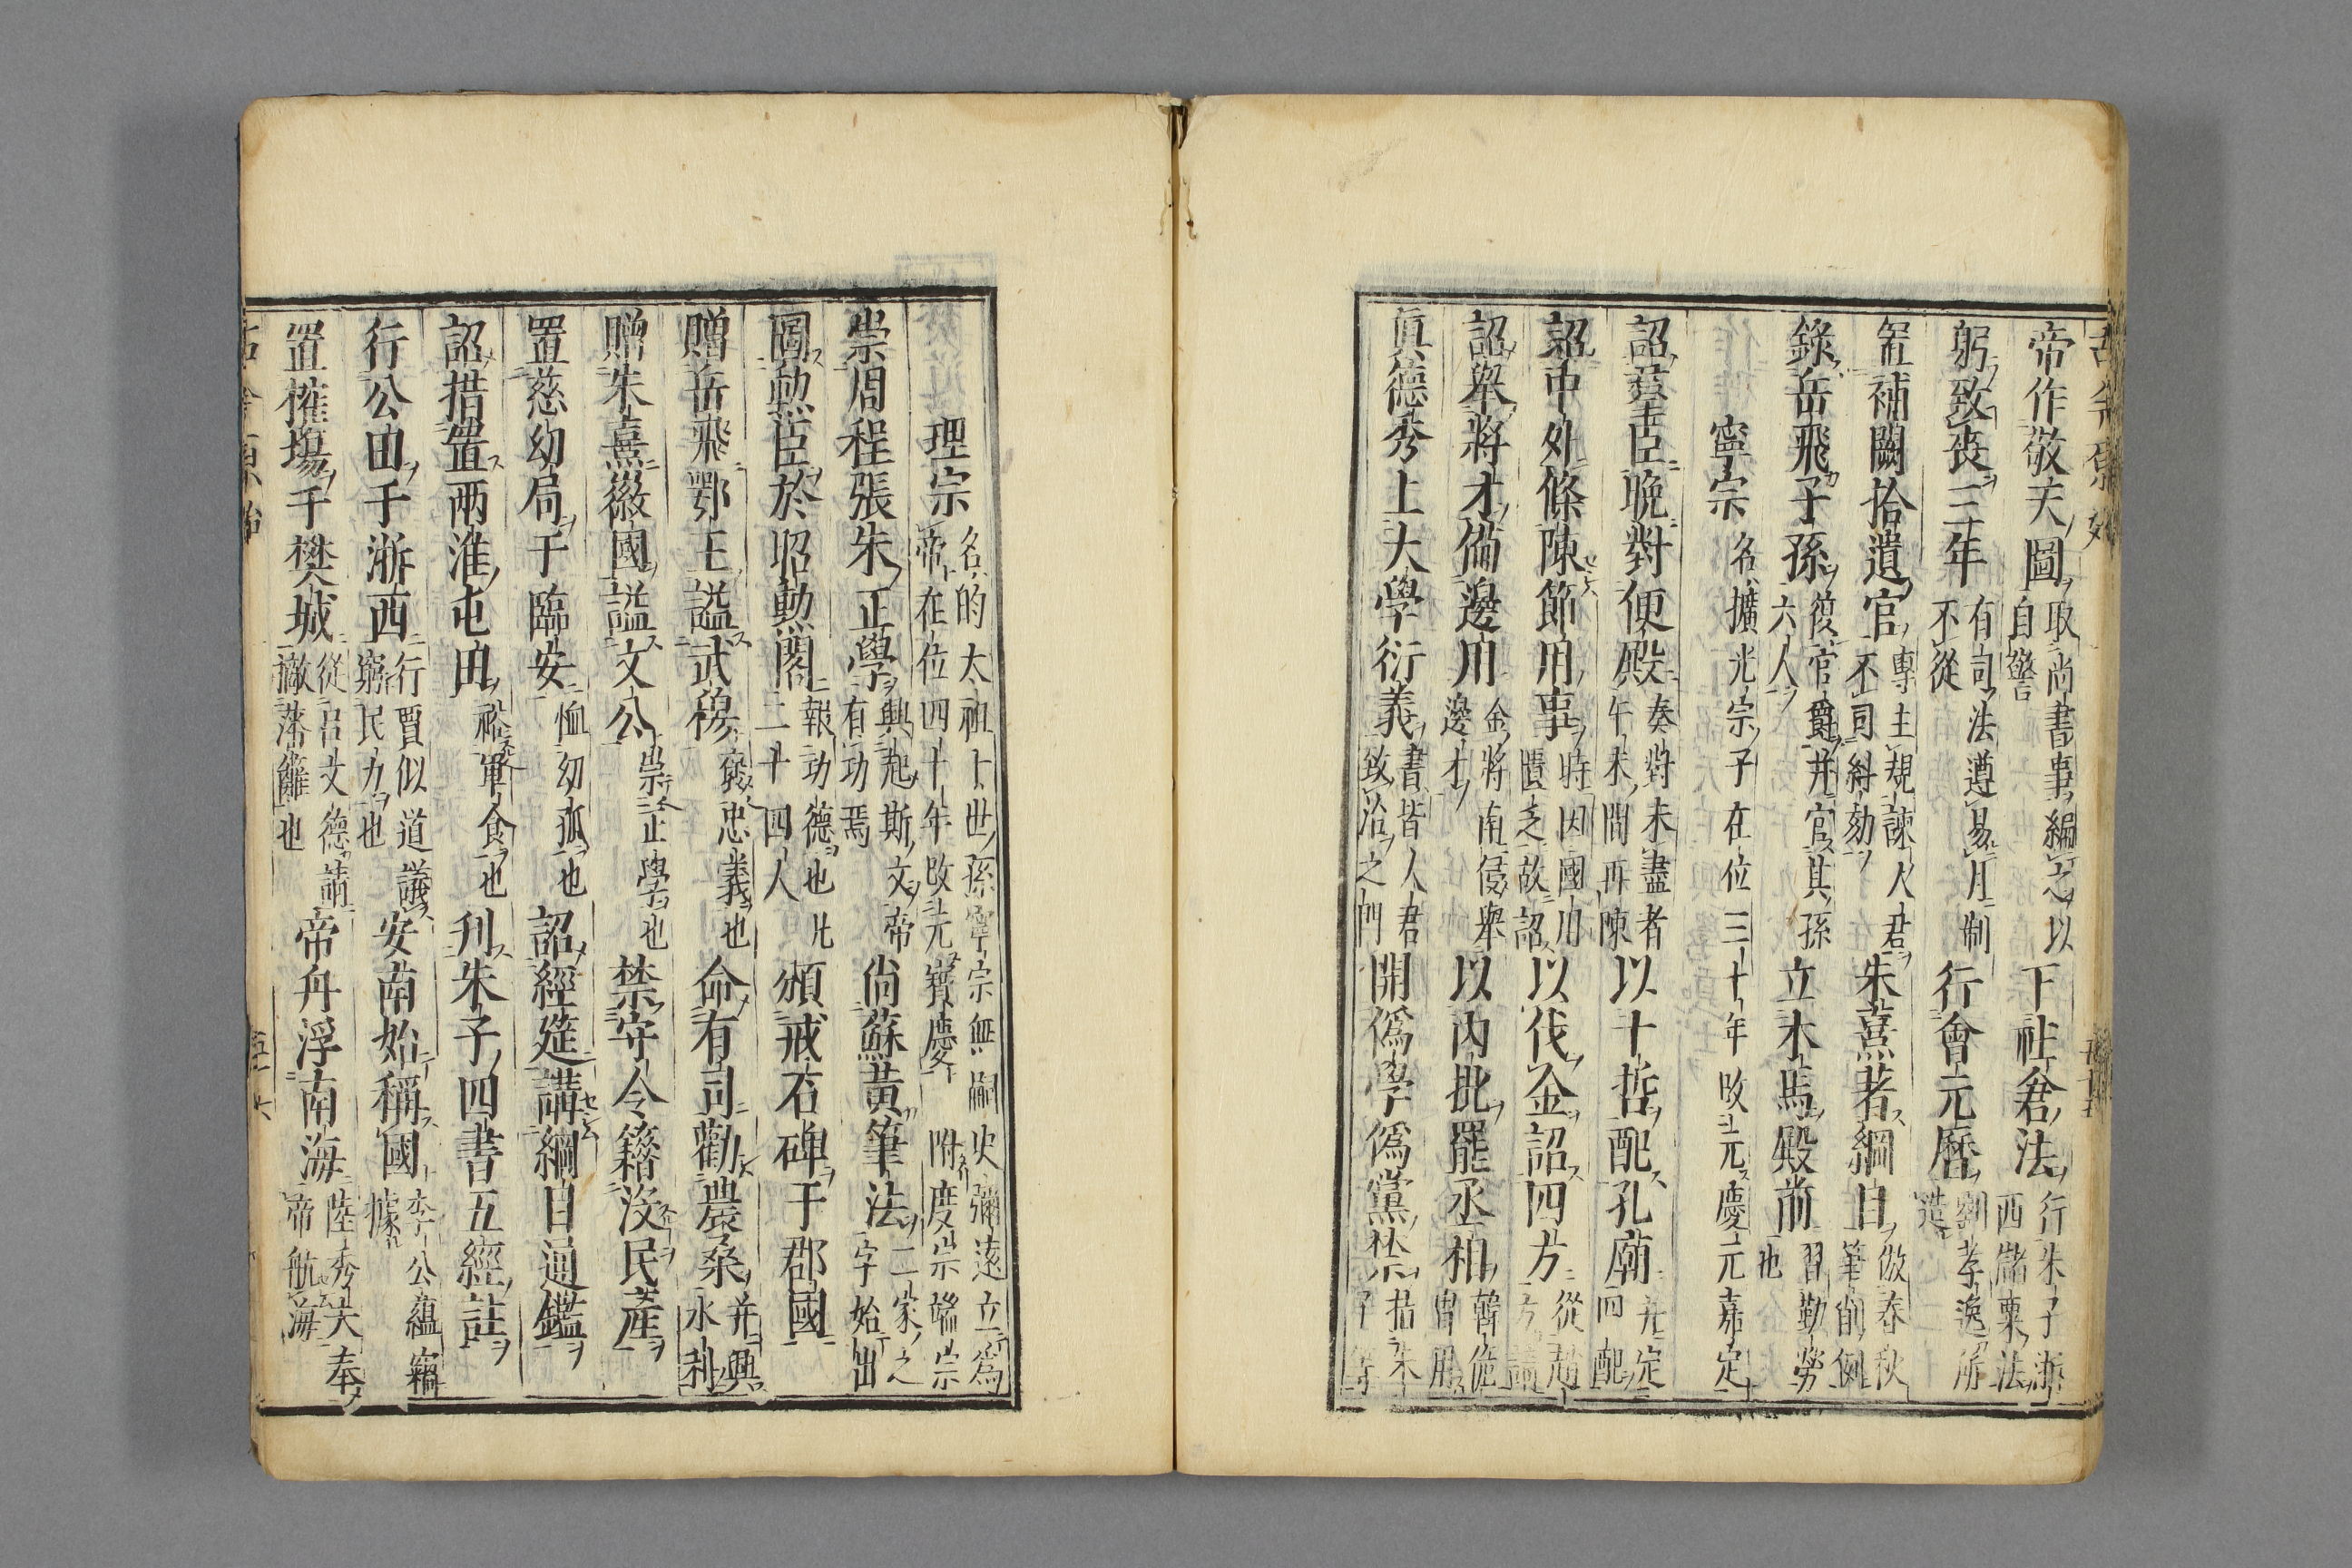 帝作敬天圖取尚書事編之以自警下社倉法行朱子浙西儲粟法
躬致喪三年有司法遵易月制不從行會元曆劉孝逸所造
置補闕拾遺官專主規諫人君不司糾劾朱熹著綱目倣春秋筆削例
錄岳飛子孫復官爵并官其孫六人立木馬殿前習勤勞也
寧宗名擴光宗子在位三十年改元慶元嘉定
詔羣臣晚對便殿奏對未盡者午未間再陳以十哲配孔廟并定四配
詔中外條陳節用事時因國用匱乏故詔以伐金詔四方從趙方請
詔舉將才備邊用金將南侵舉邊才以內批罷丞相韓侂冑用
眞德秀上大學衍義書皆人君致治之門開僞學僞黨禁指朱子等
理宗名的太祖十世孫寧宗無嗣史彌遠立爲帝在位四十年改元寶慶附度宗端宗
崇周程張朱正學興起斯文帝有功焉尚蘇黃筆法二家之字始出
圖勳臣於昭勳閣報功德也凡二十四人頒戒石碑于郡國
贈岳飛鄂王謚武穆褒忠義也命有司勸農桑并興水利
贈朱熹徽國謚文公崇正學也禁守令籍沒民產
置慈幼局于臨安恤幼孤也詔經筵講綱目通鑑
詔措置兩淮屯田裕軍食也刋朱子四書五經註
行公田于浙西行賈似道議窮民力也安南始稱國李公蘊竊據
置榷場于樊城從呂文德請撤藩籬也帝舟浮南海陸秀夫奉帝航海